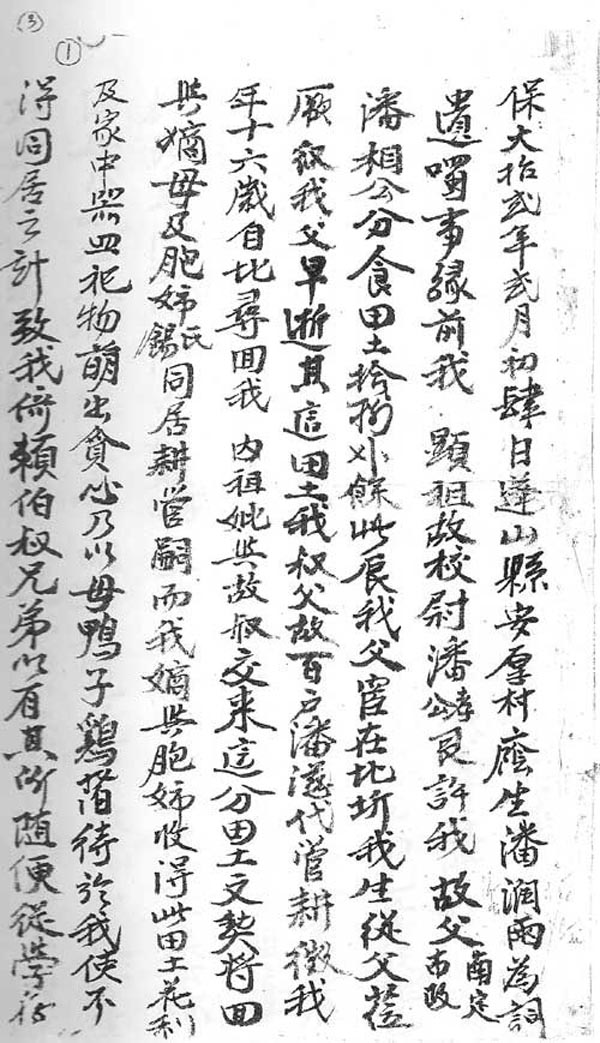 ③
①
保大拾貳年貳月初肆日蓮山縣安厚村廕生潘潤雨為詞
遺囑事緣前我 顯祖故校尉潘公孝良許我 故父南定布政
潘相公分食田土拾捌外餘此辰我父宦在北圻我生從父蒞
厥任我父早逝其這田土我叔父故百戶潘滋代管耕徵我
年十六歲自北尋回我 內祖妣與故叔交來這分田土文契將回
與嫡母及胞姊氏錫同居耕管嗣而我嫡與胞姊收得此田土花利
及家中器皿祀物萌出貪心乃以母鴨子雞暗待於我使不
得同居之計致我倚賴伯叔兄弟以有其所隨便從學